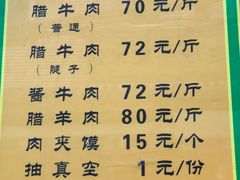 腊牛肉 70元/斤
(普通)
腊牛肉 72元/斤
(腱子)
酱牛肉 72元/斤
腊羊肉 80元/斤
肉夹馍 15元/个
抽真空 1元/份